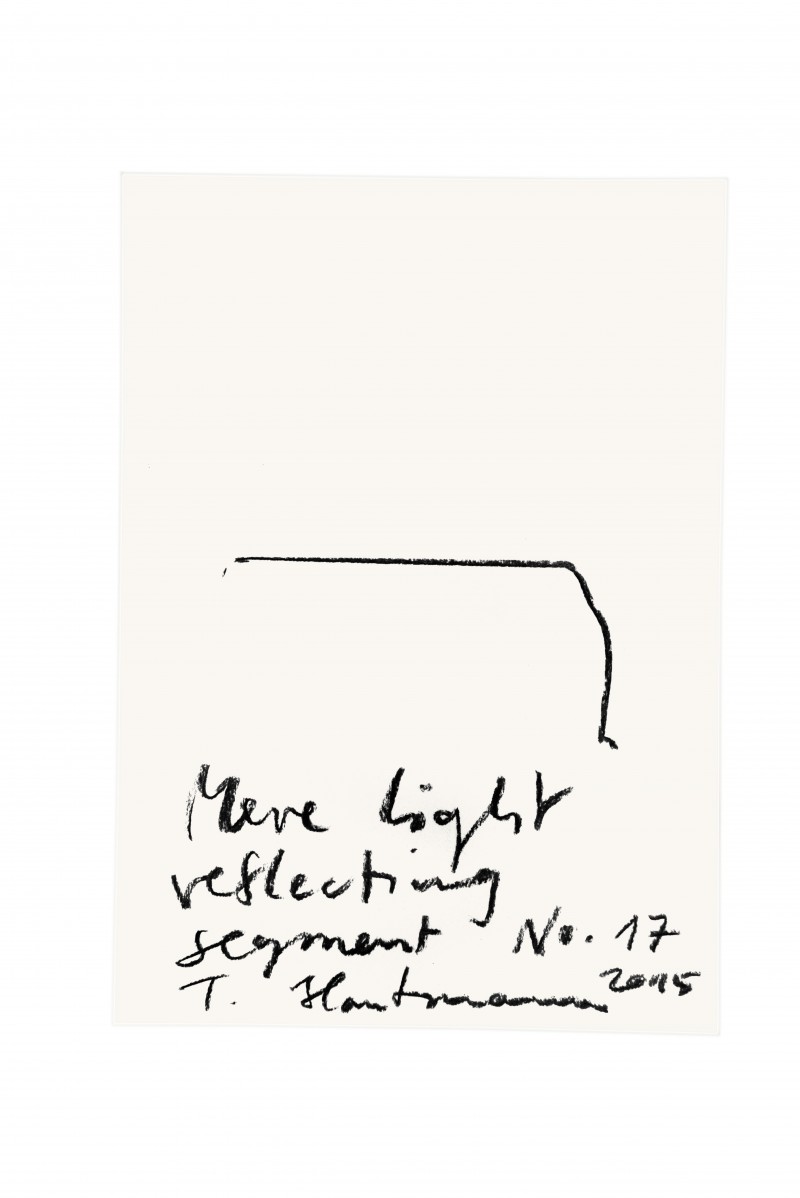 Mere light
reflecting
segment No. 17
T. 2015